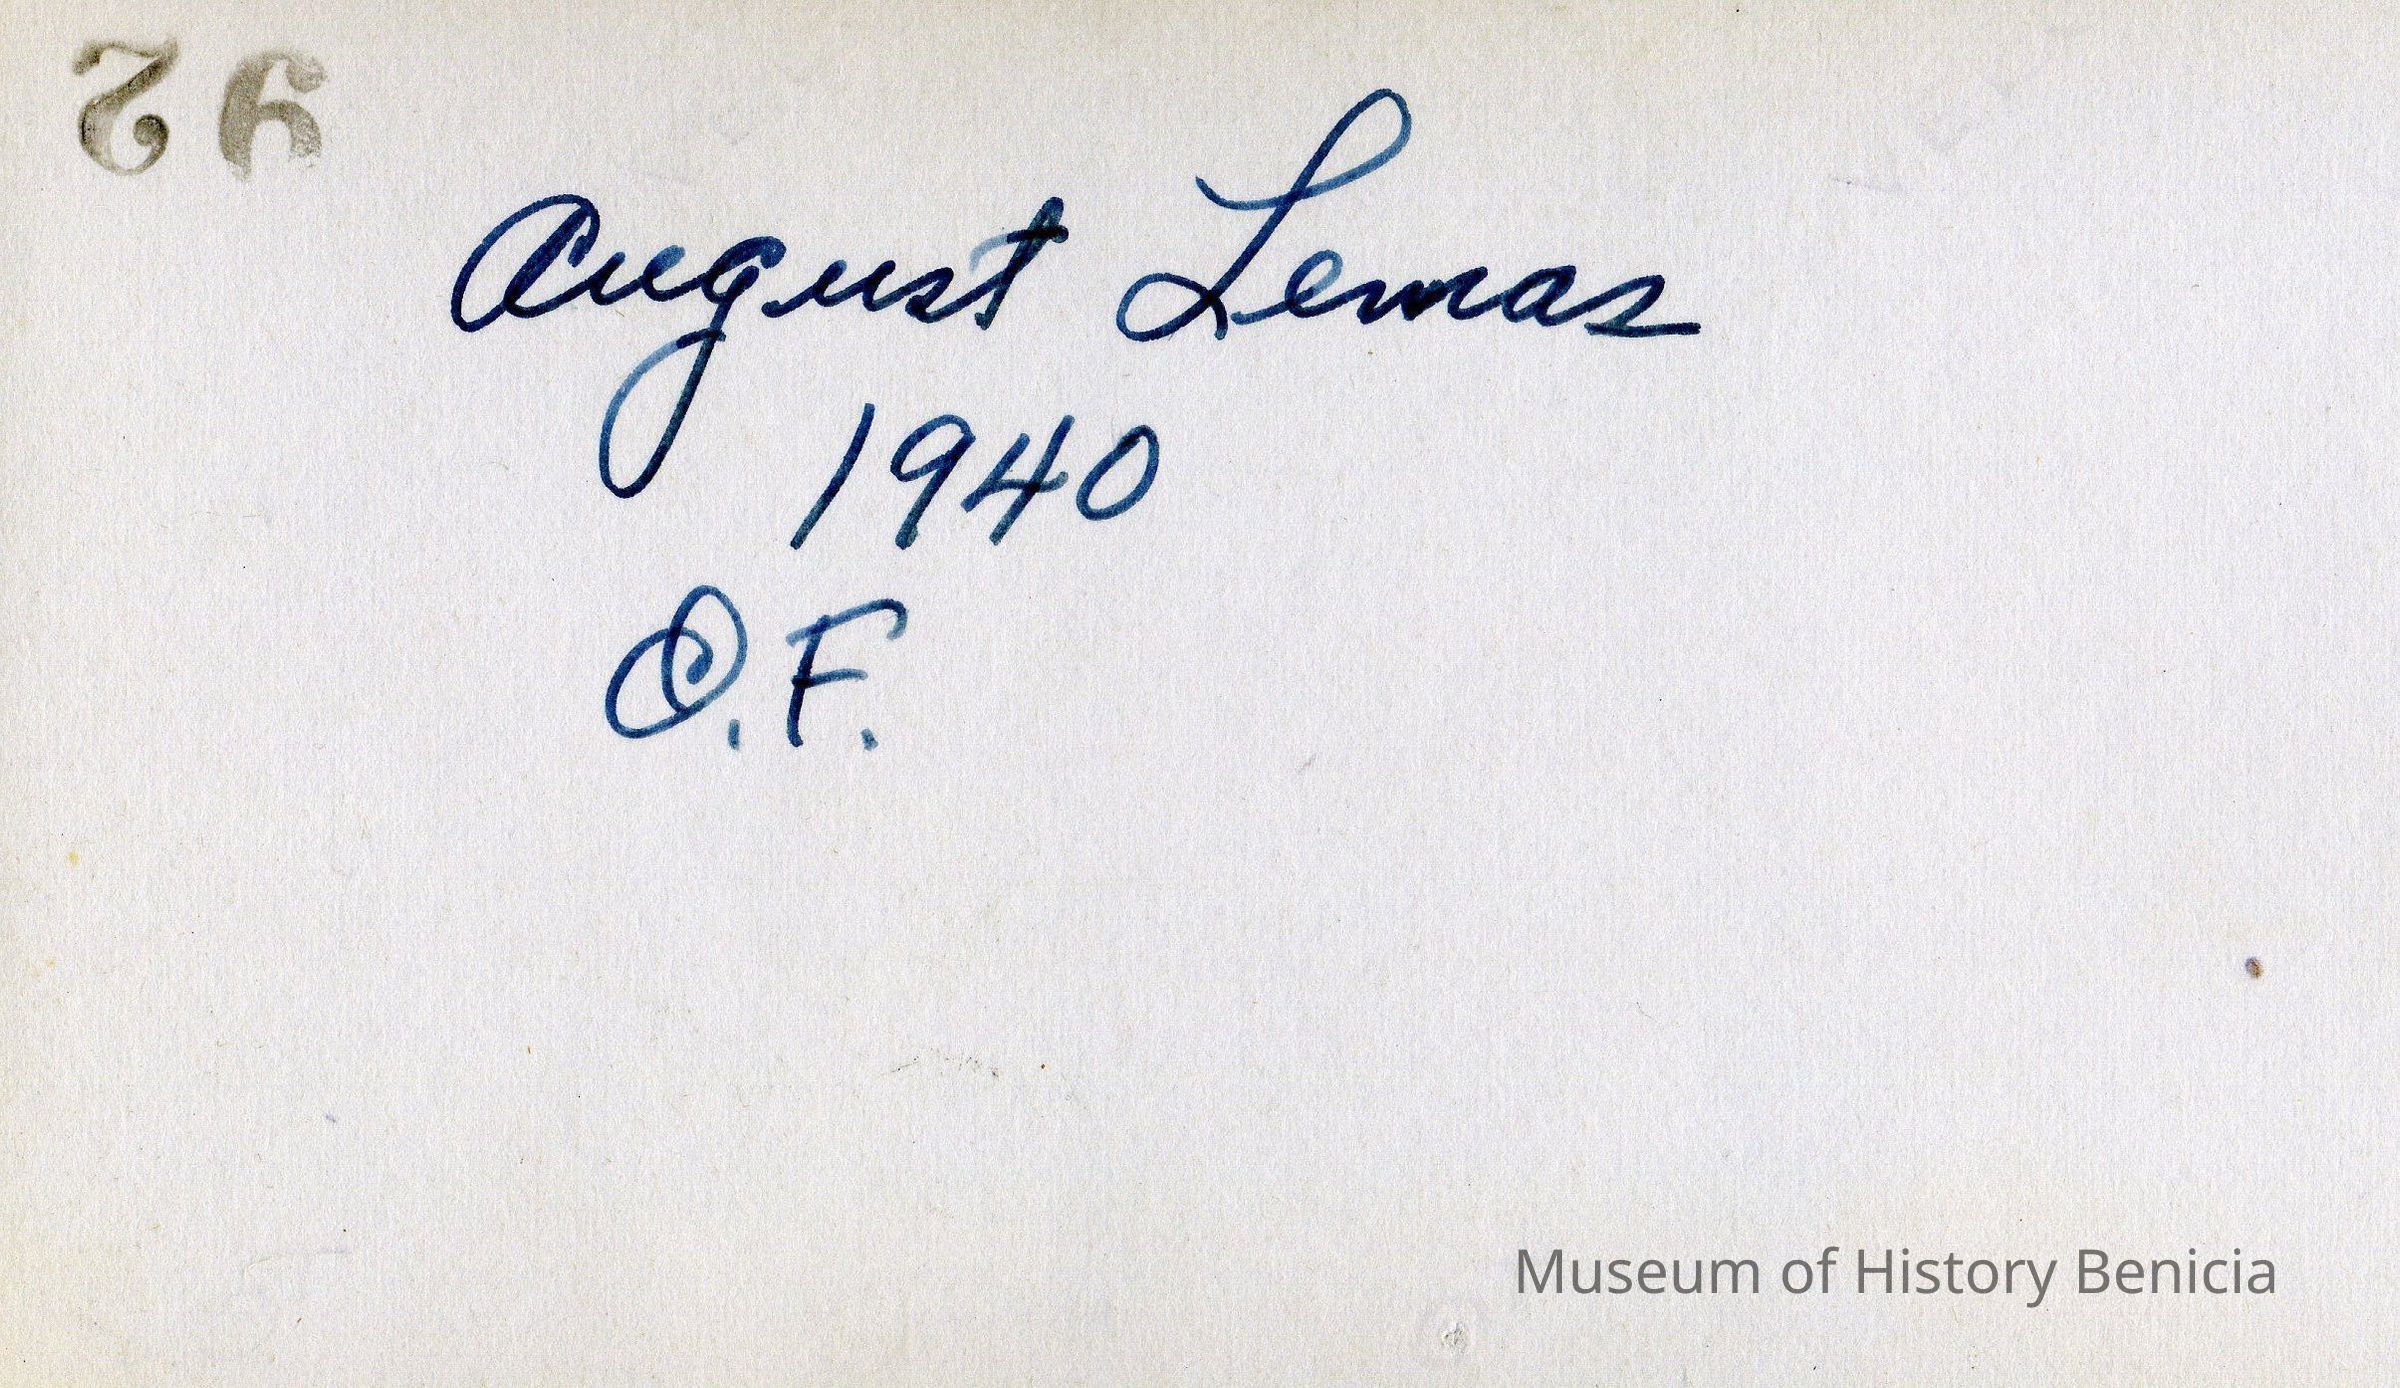 August Lemas
1940
O.F.
Museum of History Benicia